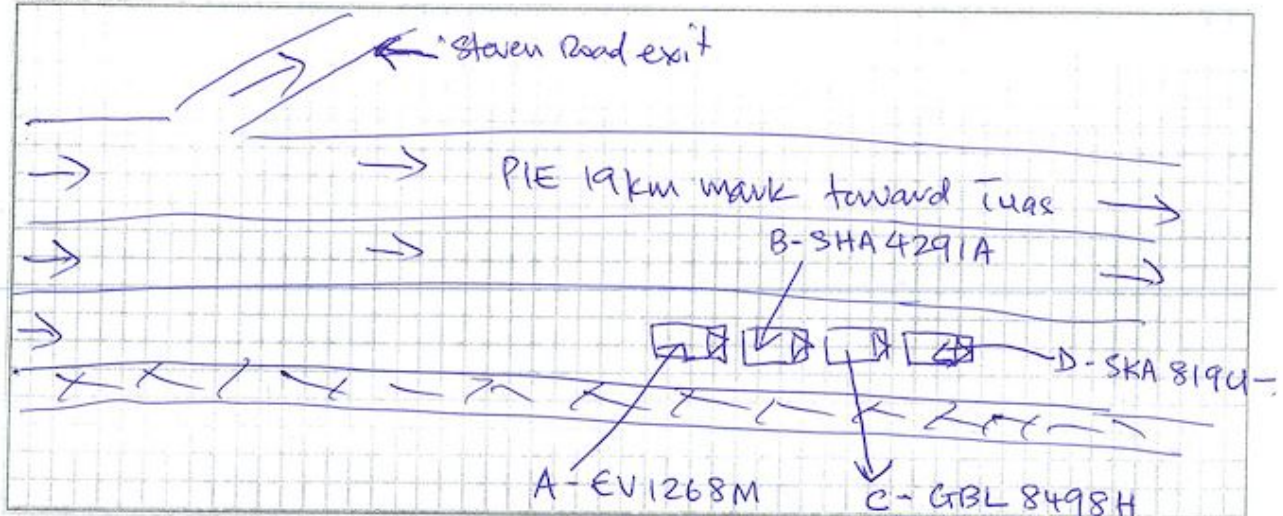 Steven Road exit
PIE 19km mark toward Tuas
B-SHA 4291A
D-SKA
A-EV1268M
C-GBL 8498H